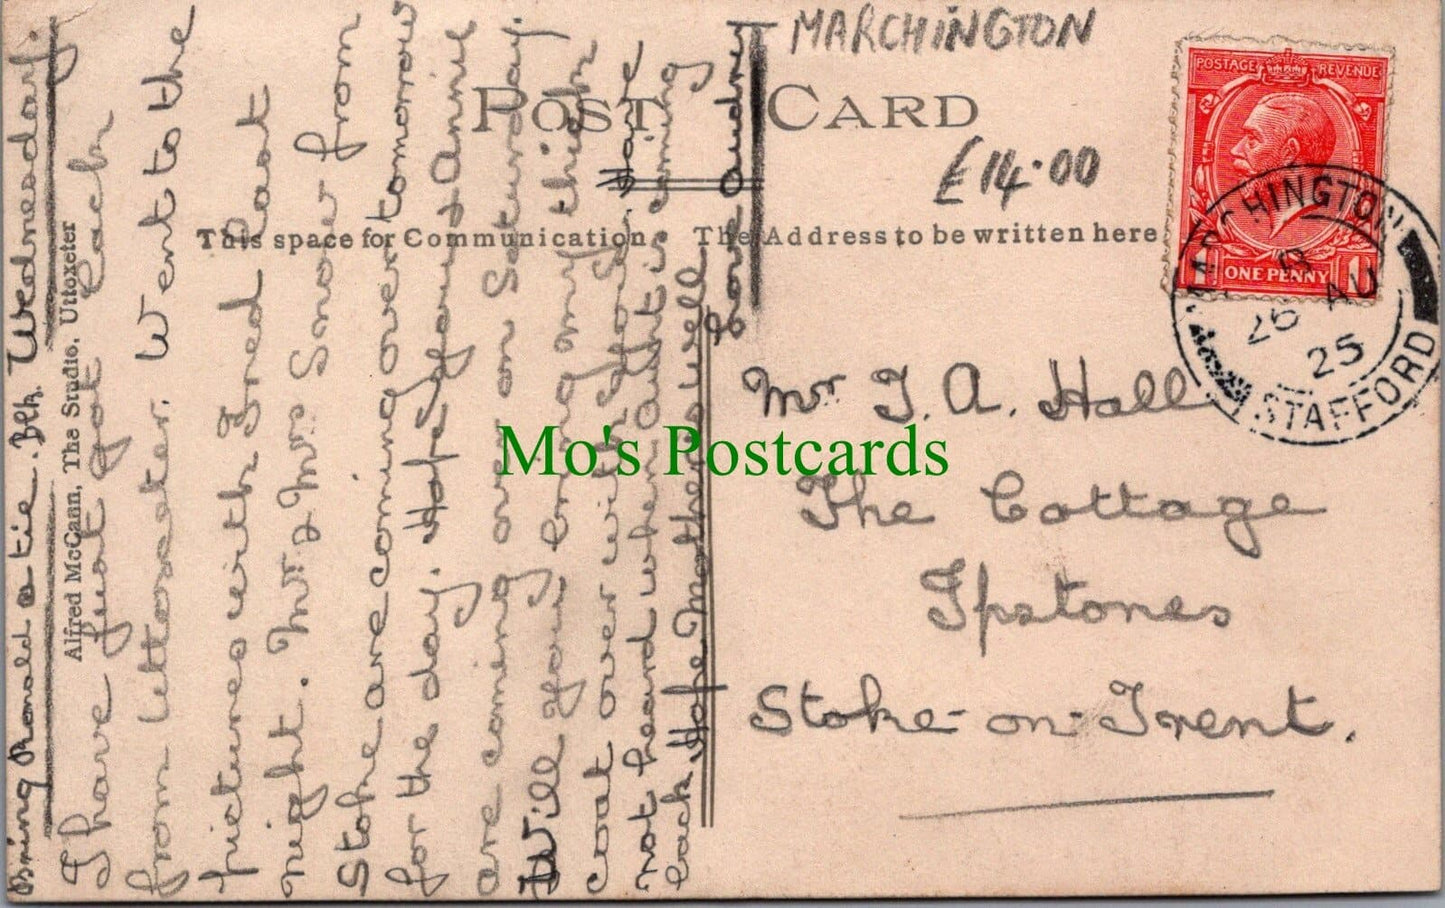 MARCHINGTON
POST CARD
£14.00
This space for Communication.
The Address to be written here
POSTAGE REVENUE
ONE PENNY
MARCHINGTON
26 AU
25
STAFFORD
Mr. J. A. Hall
The Cottage
Ipstones
Stoke-on-Trent.
Mo's Postcards
Alfred McCann, The Studio, Uttoxeter
Bring Ronald a tie. Blk. Wednesday.
I have just got back
from Uttoxeter. Went to the
pictures with Fred last
night. Mr & Mrs Snow from
Stoke are coming over tomorrow
for the day. Hope you & Annie
are coming over on Saturday.
Will you bring my thin
coat over with you. Have
not heard when Aunt is coming
back. Hope Mother is well
Love Audrey